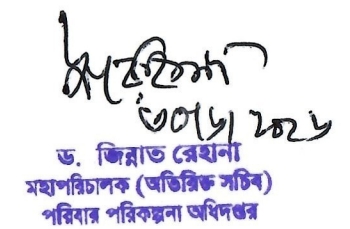 ৩০/৬/২০২৬
ড. জিন্নাত রেহানা
মহাপরিচালক (অতিরিক্ত সচিব)
পরিবার পরিকল্পনা অধিদপ্তর